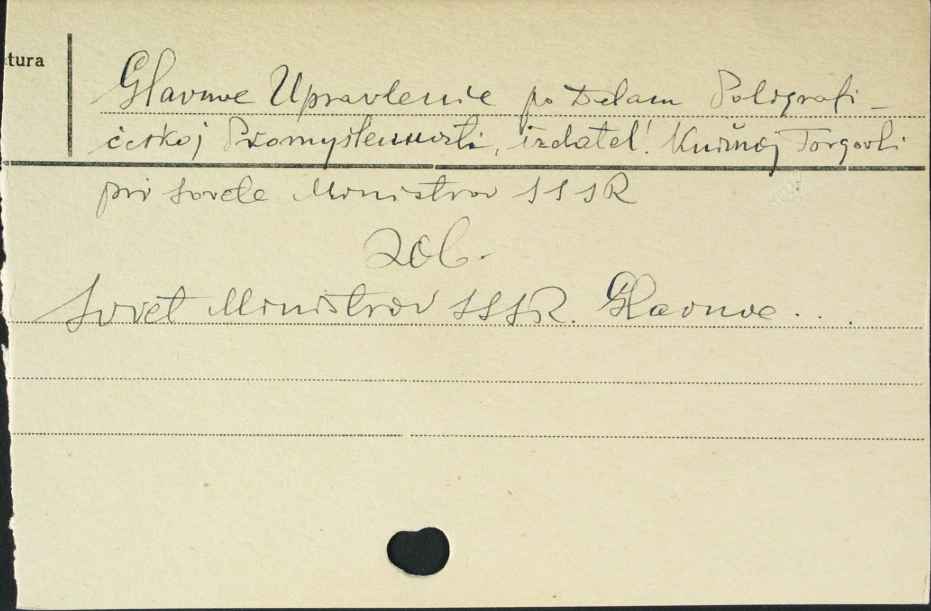 tura
Glavnoe Upravlenie po Delam Poligrafi-
českoj Promyšlennosti, izdatel'. Knižnoj Torgovli
pri Sovete Ministrov SSSR
zob.
Sovet Ministrov SSSR. Glavnoe...